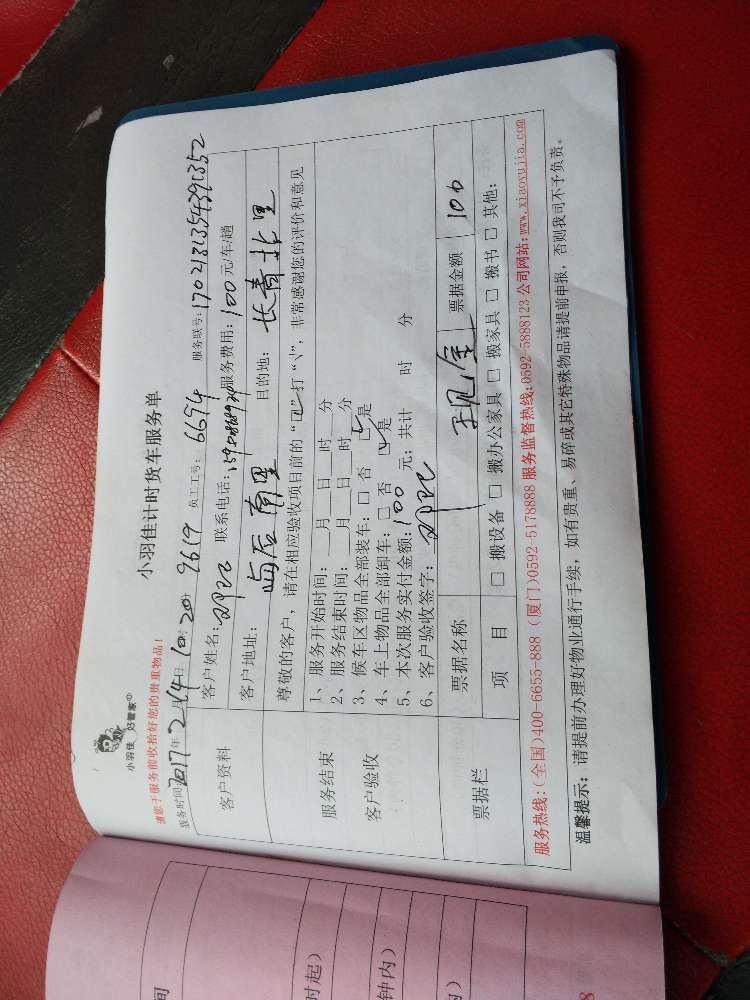 小羽佳 好管家
小羽佳计时货车服务单
请您于服务前收拾好您的贵重物品！
服务时间2017年2月14日10时20分 9619 员工工号：6694 服务联号：1702181354391352
客户资料
客户姓名： 联系电话： 服务费用：100元/车/趟
客户地址：屿后南里 目的地：长青北里
服务结束
客户验收
尊敬的客户，请在相应验收项目前的“□”打“√”，非常感谢您的评价和意见
1、服务开始时间：__月__日__时__分
2、服务结束时间：__月__日__时__分
3、候车区物品全部装车：□ 否 ☑是
4、车上物品全部卸车：□ 否 ☑是
5、本次服务实付金额：100元；共计 时 分
6、客户验收签字：
票据栏
票据名称 现金 票据金额 100
项 目 □ 搬设备 □ 搬办公家具 □ 搬家具 □ 搬书 □ 其他：
服务热线：(全国)400-6655-888 (厦门)0592-5178888 服务监督热线：0592-5888123 公司网站：www.xiaoyujia.com
温馨提示：请提前办理好物业通行手续，如有贵重、易碎或其它特殊物品请提前申报，否则我司不予负责。
间
时起）
钟内）
）
8